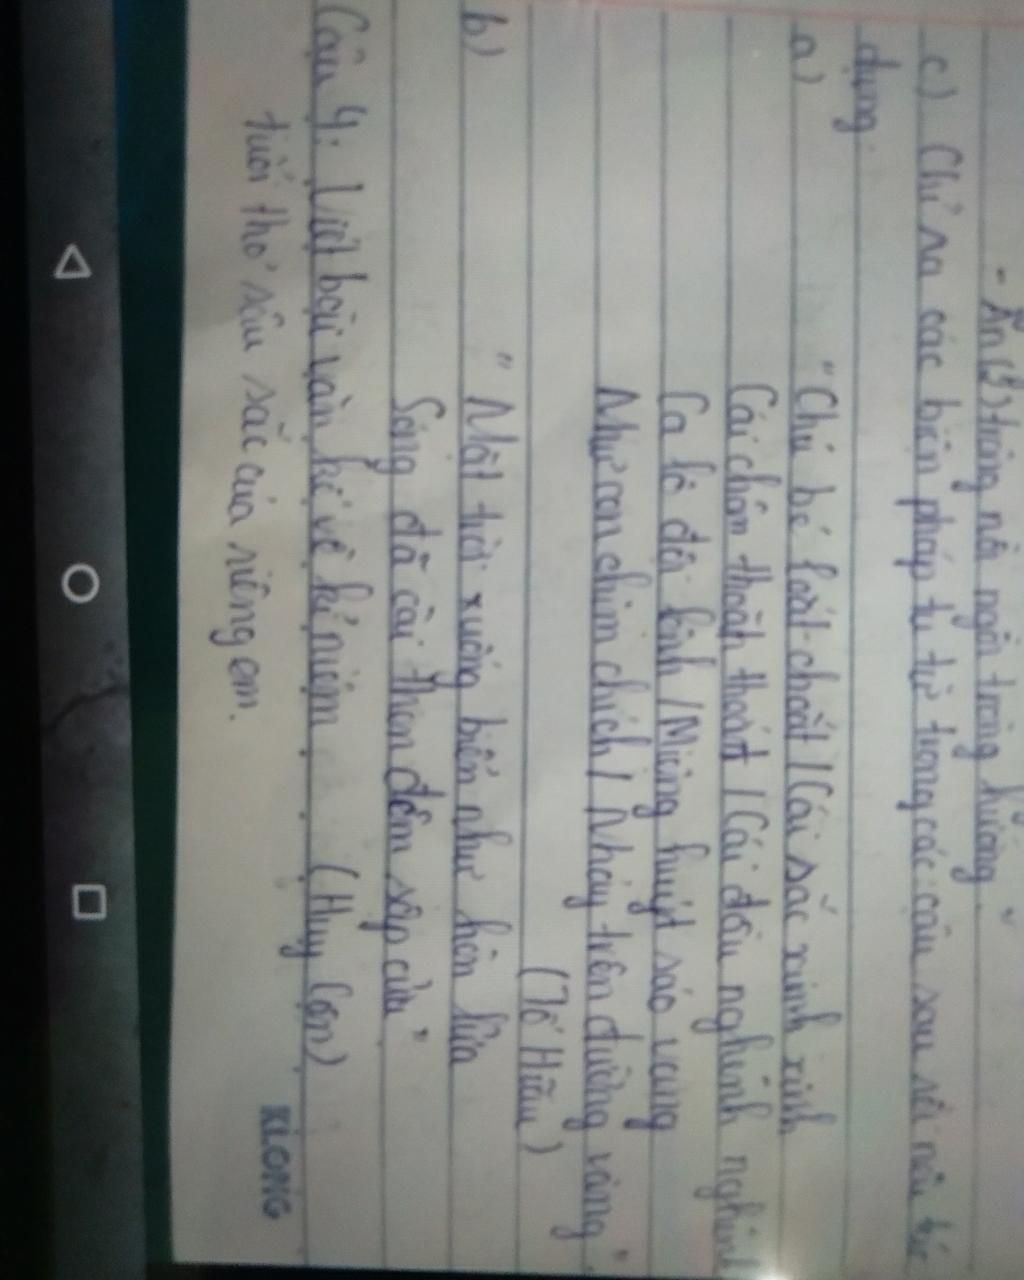 - Ăn (3) trông nồi ngồi trông hướng".
c) Chỉ ra các biện pháp tu từ trong các câu sau rồi nêu tác
dụng.
a) "Chú bé loắt choắt / Cái sắc xinh xinh
Cái chân thoăn thoắt / Cái đầu nghênh nghênh
Ca lô đội lệch / Miệng huýt sáo vang
Như con chim chích / Nhảy trên đường vàng".
(Tố Hữu)
b) "Mặt trời xuống biển như hòn lửa
Sóng đã cài then đêm sập cửa"
(Huy Cận)
Câu 4: Viết bài văn kể về kỉ niệm
tuổi thơ sâu sắc của riêng em.
KLONG